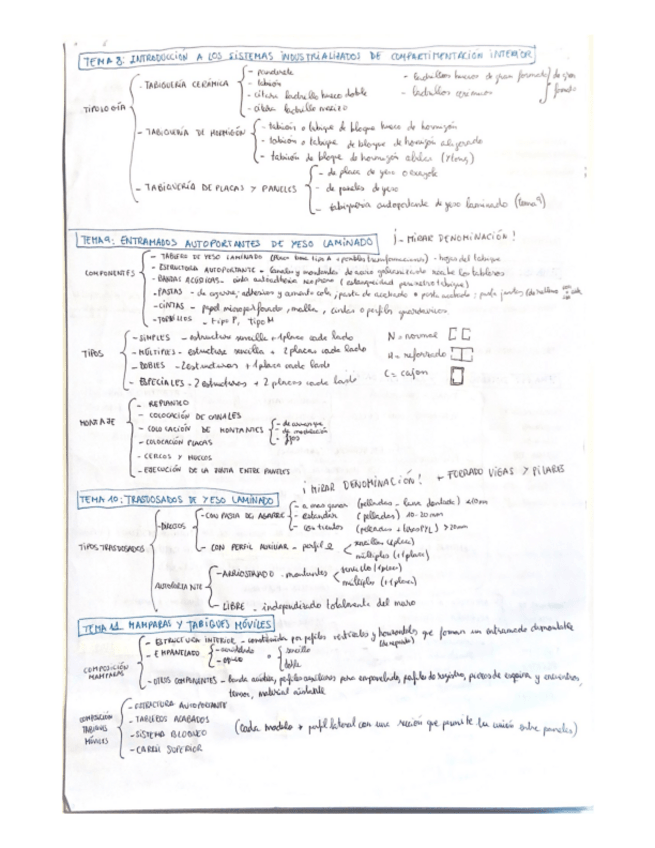 TEMA 8: INTRODUCCIÓN A LOS SISTEMAS INDUSTRIALIZADOS DE COMPARTIMENTACIÓN INTERIOR
TIPOLOGÍA
- TABIQUERÍA CERÁMICA
- panderete
- tabicón
- citara ladrillo hueco doble
- citara ladrillo macizo
- ladrillos huecos de gran formato
- ladrillos cerámicos
de gran formato
- TABIQUERÍA DE HORMIGÓN
- tabicón o tabique de bloque hueco de hormigón
- tabicón o tabique de bloque de hormigón aligerado
- tabicón de bloque de hormigón
- TABIQUERÍA DE PLACAS Y PANELES
- de placa de yeso o escayola
- de paneles de yeso
- tabiquería autoportante de yeso laminado (tema 9)
TEMA 9: ENTRAMADOS AUTOPORTANTES DE YESO LAMINADO
¡- MIRAR DENOMINACIÓN!
COMPONENTES
- TABLERO DE YESO LAMINADO (Placa base tipo A + posibles transformaciones) - hojas del tabique
- ESTRUCTURA AUTOPORTANTE - canales y montantes de acero galvanizado
- BANDAS ACÚSTICAS - cinta autoadhesiva neopreno (estanqueidad perimetro tabique)
- PASTAS - de agarre, adhesivos y
- CINTAS - papel microperforado, malla, cintas o perfiles guardavivos
- TORNILLOS - tipo P, Tipo M
TIPOS
- SIMPLES - estructura sencilla + 1 placa cada lado
- MÚLTIPLES - estructura sencilla + 2 placas cada lado
- DOBLES - 2 estructuras + 1 placa cada lado
- ESPECIALES - 2 estructuras + 2 placas cada lado
N = normal
H = reforzado
C = cajón
MONTAJE
- REPLANTEO
- COLOCACIÓN DE CANALES
- COLOCACIÓN DE MONTANTES
- de arranque
- de modulación
- fijos
- COLOCACIÓN PLACAS
- CERCOS Y HUECOS
- EJECUCIÓN DE LA JUNTA ENTRE PANELES
¡MIRAR DENOMINACIÓN! + FORRADO VIGAS Y PILARES
TEMA 10: TRASDOSADOS DE YESO LAMINADO
TIPOS TRASDOSADOS
- DIRECTOS
- CON PASTA DE AGARRE
- a mas ganar (pelladas - llana dentada) <10mm
- estandar (pelladas) 10-20mm
- con tientos >20mm
- CON PERFIL AUXILIAR - perfil Ω
sencillos (1 placa)
múltiples (+1 placa)
AUTOPORTANTE
- ARRIOSTRADO - montantes
sencillo (1 placa)
múltiples (+1 placa)
- LIBRE - independizado totalmente del muro
TEMA 11 MAMPARAS Y TABIQUES MÓVILES
COMPOSICIÓN MAMPARAS
- ESTRUCTURA INTERIOR - constituida por perfiles verticales y horizontales que forman un entramado desmontable
- EMPANELADO
- acristalado
- opaco
sencillo
doble
- OTROS COMPONENTES - banda acústica, perfiles auxiliares para empanelado, perfiles de registro, piezas de esquina y encuentros,
tensor, material aislante
COMPOSICIÓN TABIQUES MÓVILES
- ESTRUCTURA AUTOPORTANTE
- TABLEROS ACABADOS
- SISTEMA BLOQUEO
- CARRIL SUPERIOR
(Cada modulo + perfil lateral con una sección que permite la unión entre paneles)